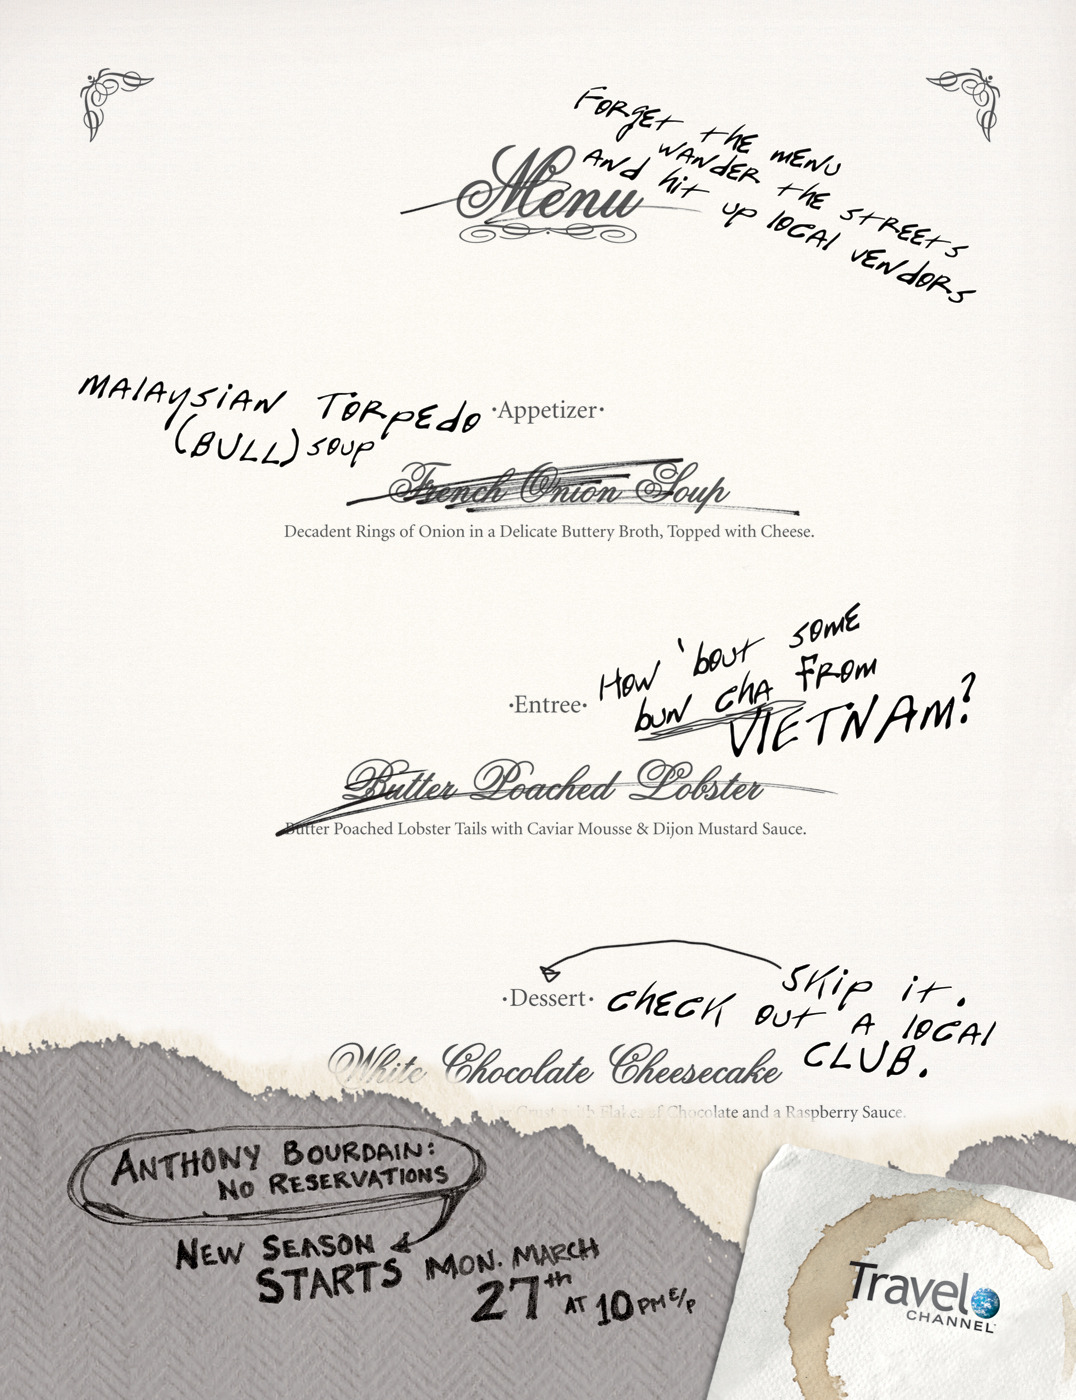 FORGET THE MENU
WANDER THE STREETS
AND HIT UP LOCAL VENDORS
Menu
MALAYSIAN TORPEDO
(BULL) SOUP
·Appetizer·
French Onion Soup
Decadent Rings of Onion in a Delicate Buttery Broth, Topped with Cheese.
HOW 'BOUT SOME
BUN CHA FROM
VIETNAM?
·Entree·
Butter Poached Lobster
Butter Poached Lobster Tails with Caviar Mousse & Dijon Mustard Sauce.
SKIP IT.
·Dessert·
CHECK OUT A LOCAL
CLUB.
White Chocolate Cheesecake
Crust with Flakes of Chocolate and a Raspberry Sauce.
ANTHONY BOURDAIN:
NO RESERVATIONS
NEW SEASON
STARTS MON. MARCH
27th AT 10 PM E/P
Travel
CHANNEL